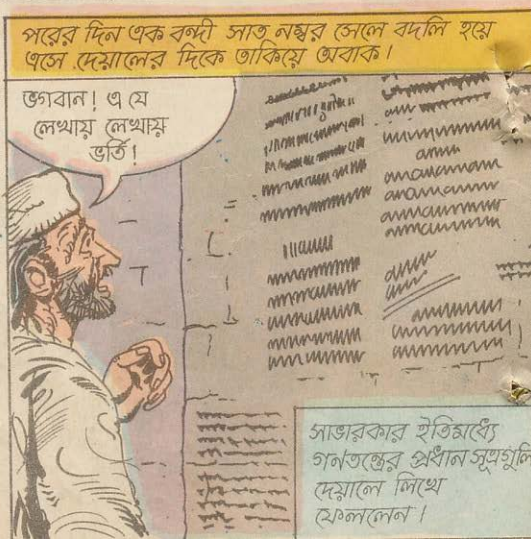 পরের দিন এক বন্দী সাত নম্বর সেলে বদলি হয়ে
এসে দেয়ালের দিকে তাকিয়ে অবাক।
ভগবান! এ যে
লেখায় লেখায়
ভর্তি!
সাভারকার ইতিমধ্যে
গনতন্ত্রের প্রধান সূত্রগুলি
দেয়ালে লিখে
ফেললেন।